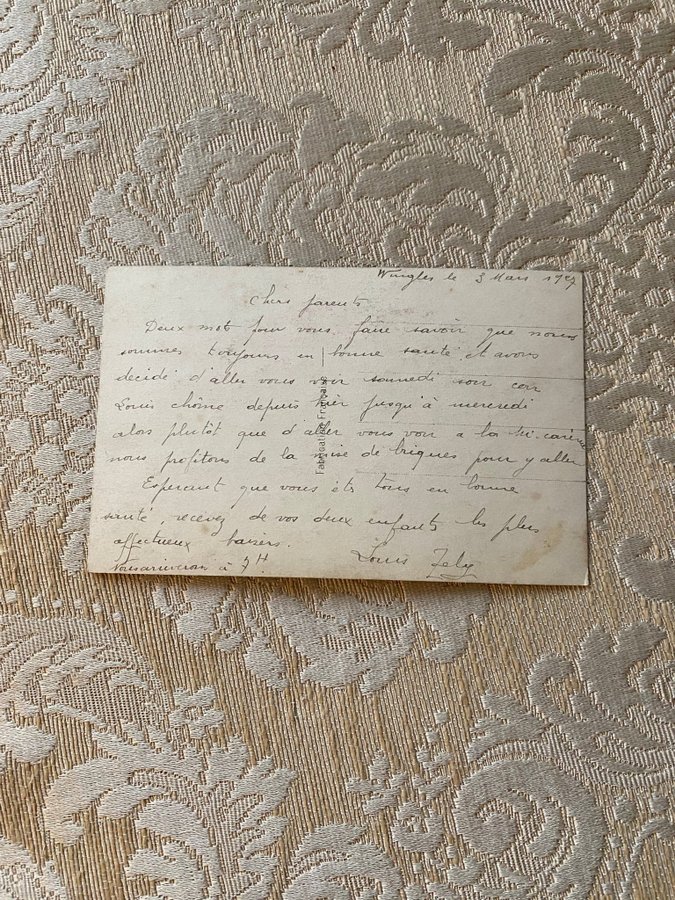 Wingles le 3 Mars 1927
Chers parents
Deux mot pour vous faire savoir que nous
sommes toujours en bonne santé et avons
décidé d'aller vous voir samedi soir car
Louis chôme depuis hier jusqu'à mercredi
alors plutôt que d'aller vous voir a la mi-carême
nous profitons de la mise de briques pour y aller
Esperant que vous êts tous en bonne
santé, recevez de vos deux enfants les plus
affectueux baisers.
Louis Zely
Nous arriverons à 7H
Fabrication Française